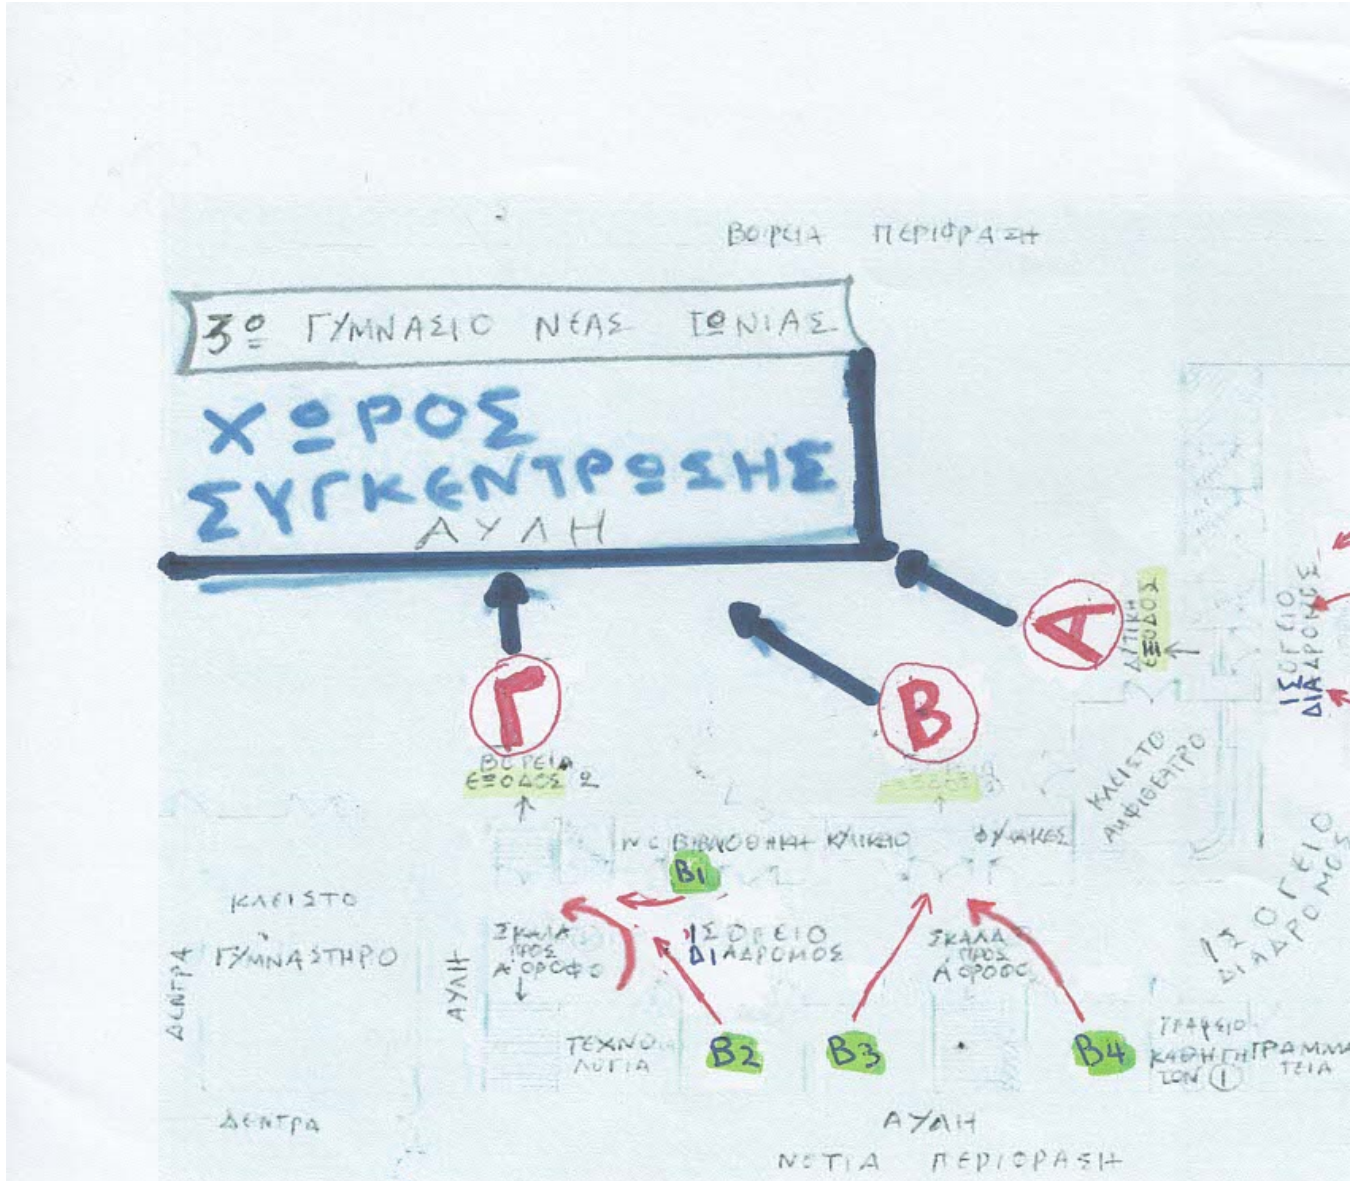 ΒΟΡΕΙΑ ΠΕΡΙΦΡΑΞΗ
3º ΓΥΜΝΑΣΙΟ ΝΕΑΣ ΙΩΝΙΑΣ
ΧΩΡΟΣ
ΣΥΓΚΕΝΤΡΩΣΗΣ
ΑΥΛΗ
Α
ΔΥΤΙΚΗ
ΕΞΟΔΟΣ
ΙΣΟΓΕΙΟ
ΔΙΑΔΡΟΜΟΣ
Γ
Β
ΒΟΡΕΙΑ
ΕΞΟΔΟΣ 2
ΚΛΕΙΣΤΟ
ΑΜΦΙΘΕΑΤΡΟ
WC ΒΙΒΛΙΟΘΗΚΗ ΚΥΛΙΚΕΙΟ
ΦΥΛΑΚΕΣ
Β1
ΚΛΕΙΣΤΟ
ΓΥΜΝΑΣΤΗΡΟ
ΔΕΝΤΡΑ
ΑΥΛΗ
ΣΚΑΛΑ
ΠΡΟΣ
Α ΟΡΟΦΟ
ΙΣΟΓΕΙΟ
ΔΙΑΔΡΟΜΟΣ
ΣΚΑΛΑ
ΠΡΟΣ
Α ΟΡΟΦΟ
ΙΣΟΓΕΙΟ
ΔΙΑΔΡΟΜΟΣ
ΤΕΧΝΟ
ΛΟΓΙΑ
Β2
Β3
Β4
ΓΡΑΦΕΙΟ
ΚΑΘΗΓΗ
ΤΩΝ 1
ΓΡΑΜΜΑ
ΤΕΙΑ
ΔΕΝΤΡΑ
ΑΥΛΗ
ΝΟΤΙΑ ΠΕΡΙΦΡΑΞΗ